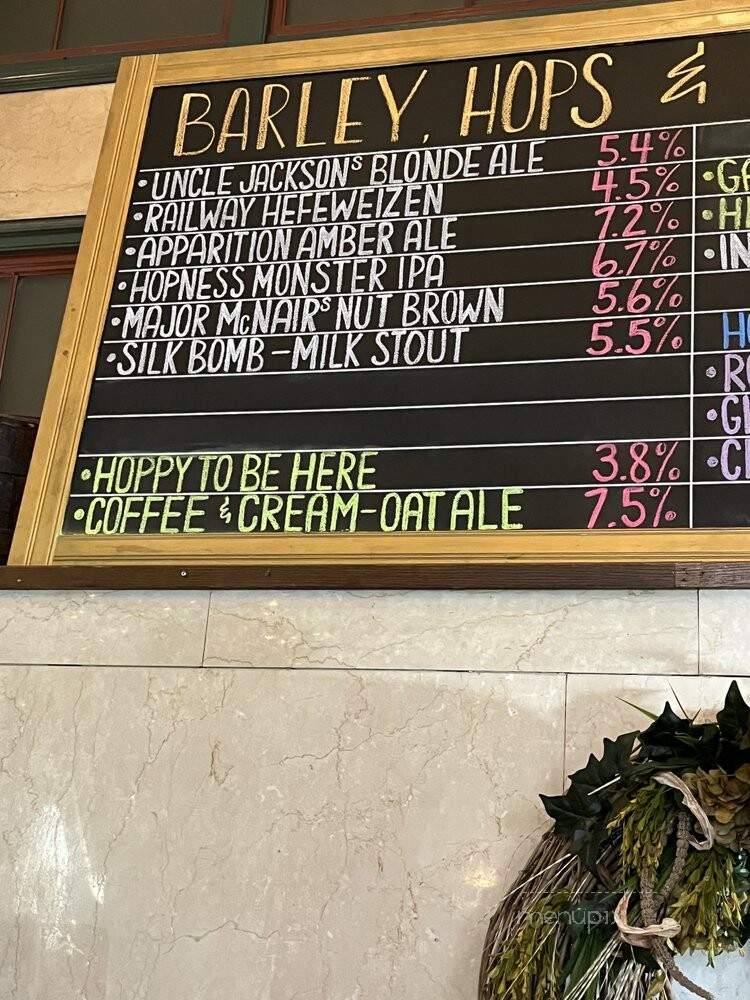 BARLEY, HOPS &
• UNCLE JACKSONS BLONDE ALE 5.4%
• RAILWAY HEFEWEIZEN 4.5%
• APPARITION AMBER ALE 7.2%
• HOPNESS MONSTER IPA 6.7%
• MAJOR McNAIRS NUT BROWN 5.6%
• SILK BOMB - MILK STOUT 5.5%
• HOPPY TO BE HERE 3.8%
• COFFEE & CREAM - OAT ALE 7.5%
menupix